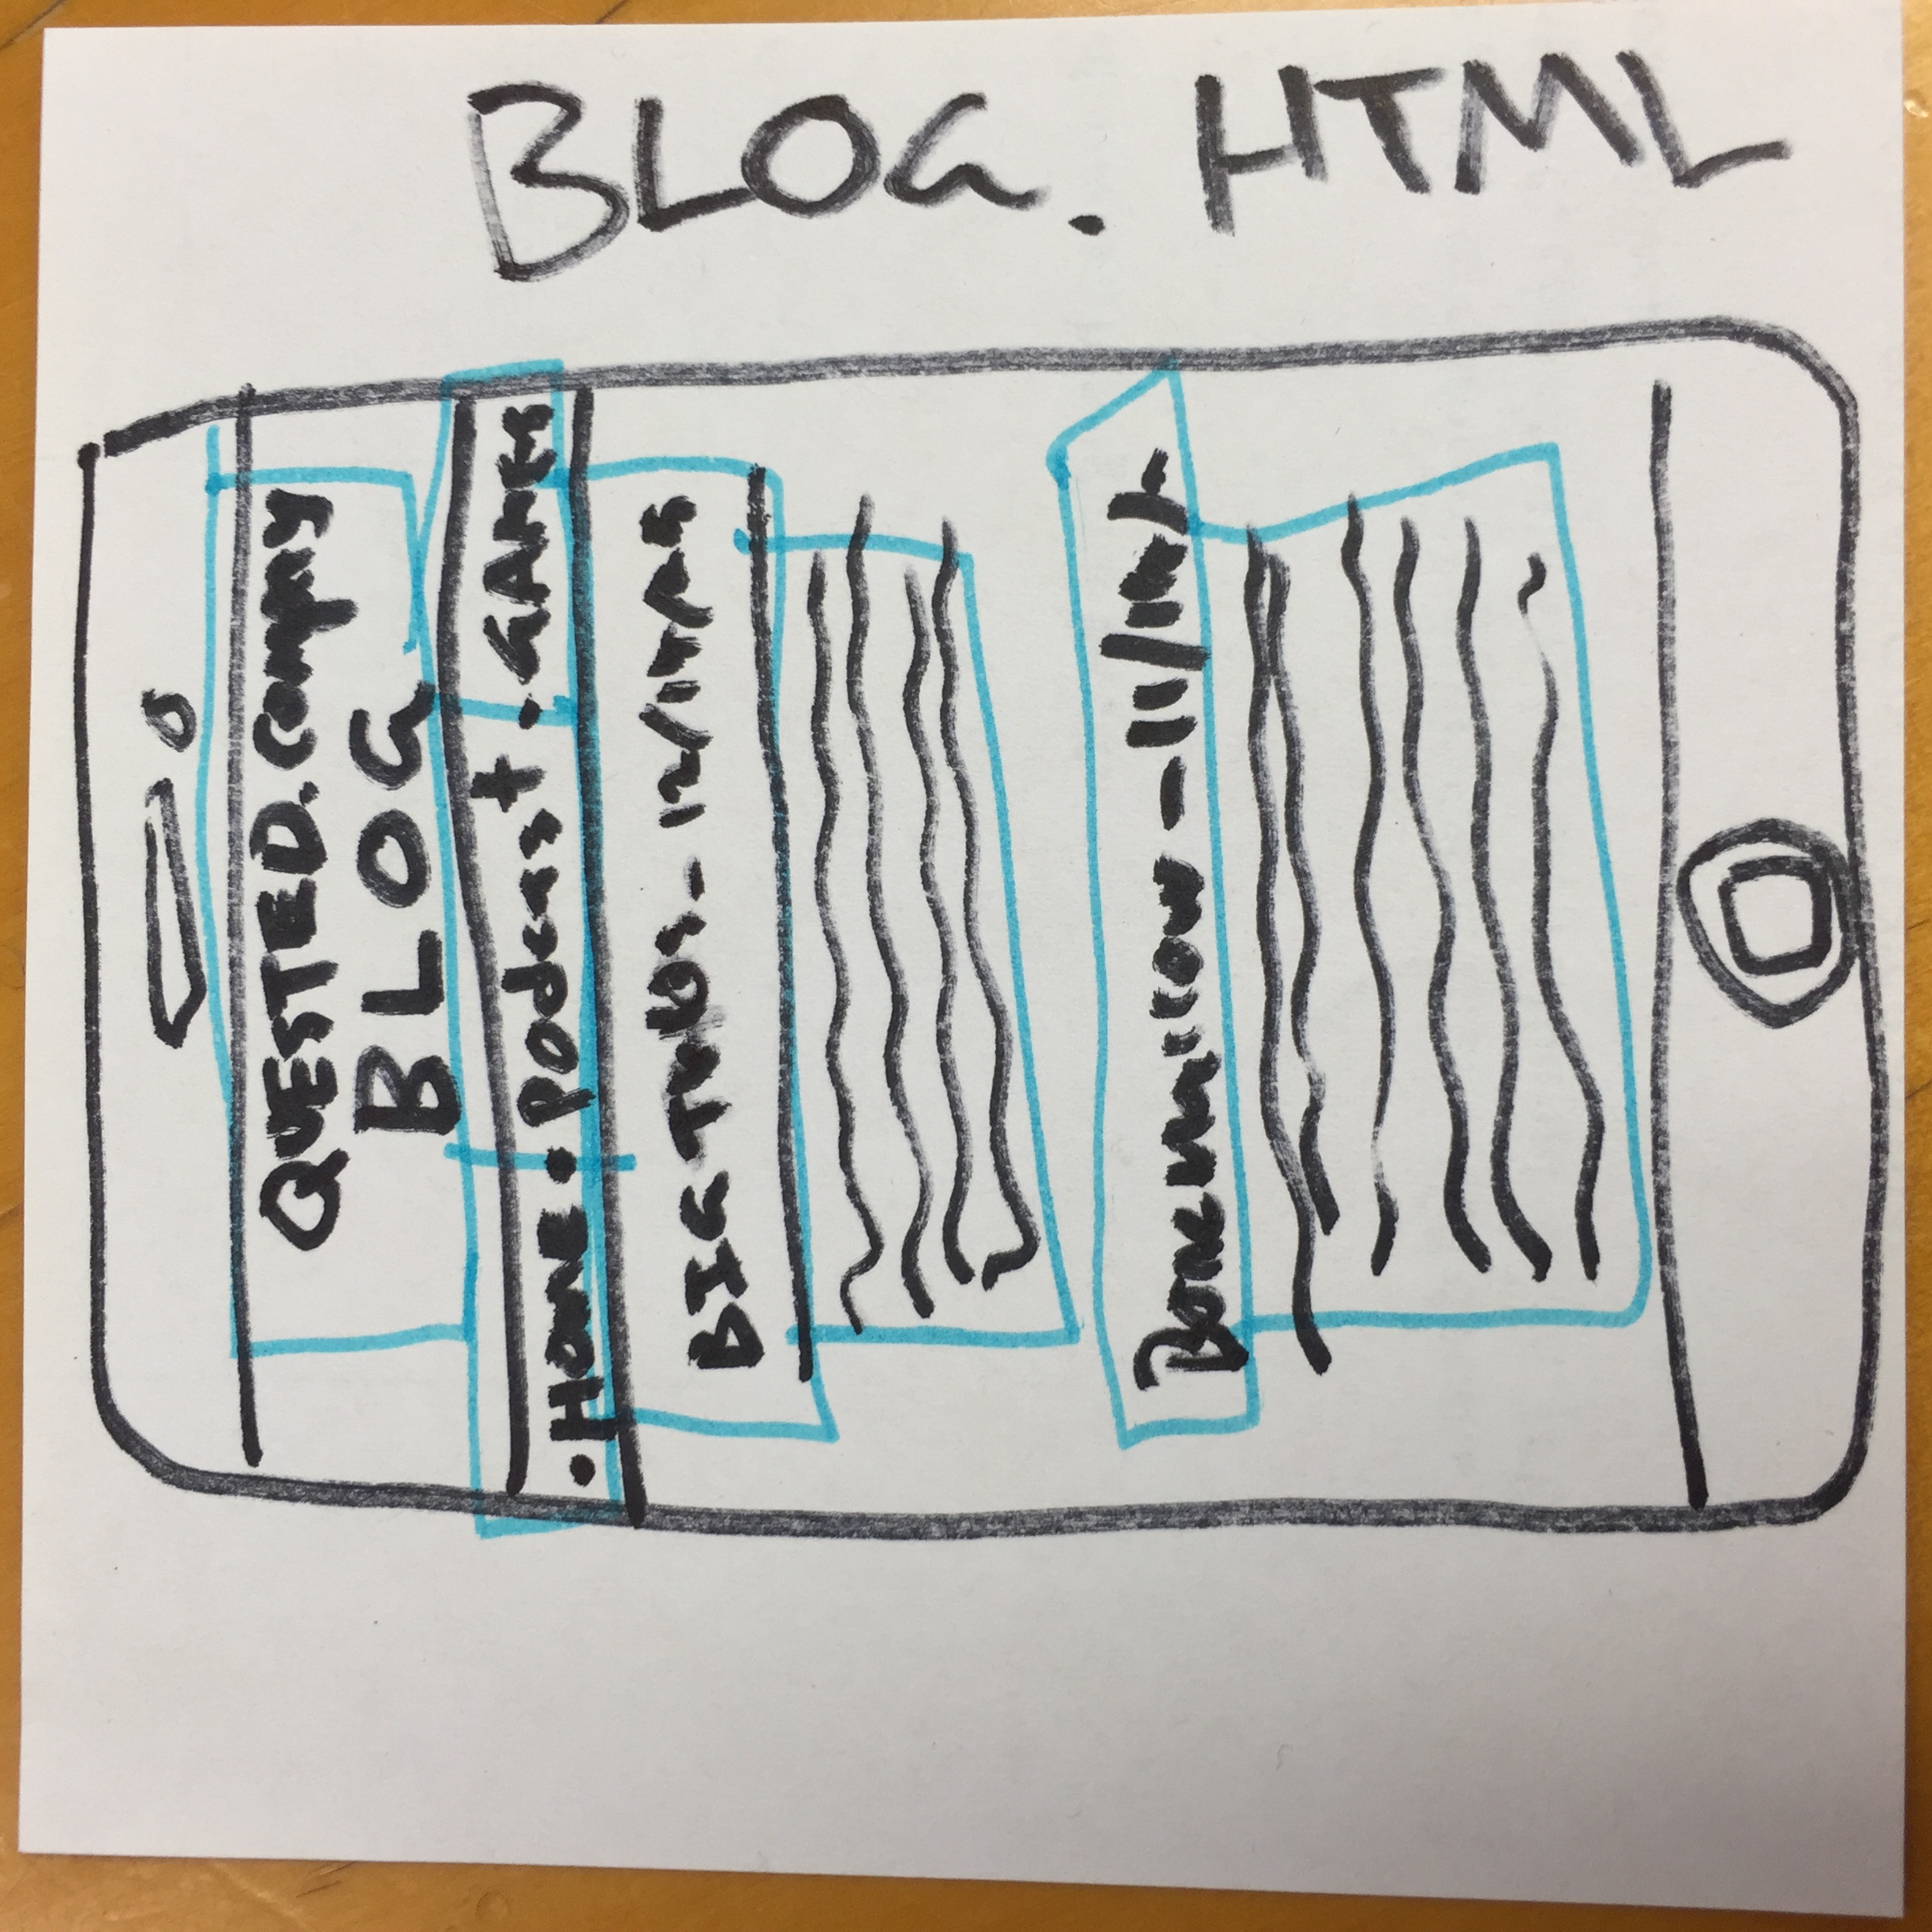 QUESTED. Company
BLOG
• Home • Podcast • GAMES
BIG - 12/14/
Bonemarrow - 11/
BLOG. HTML